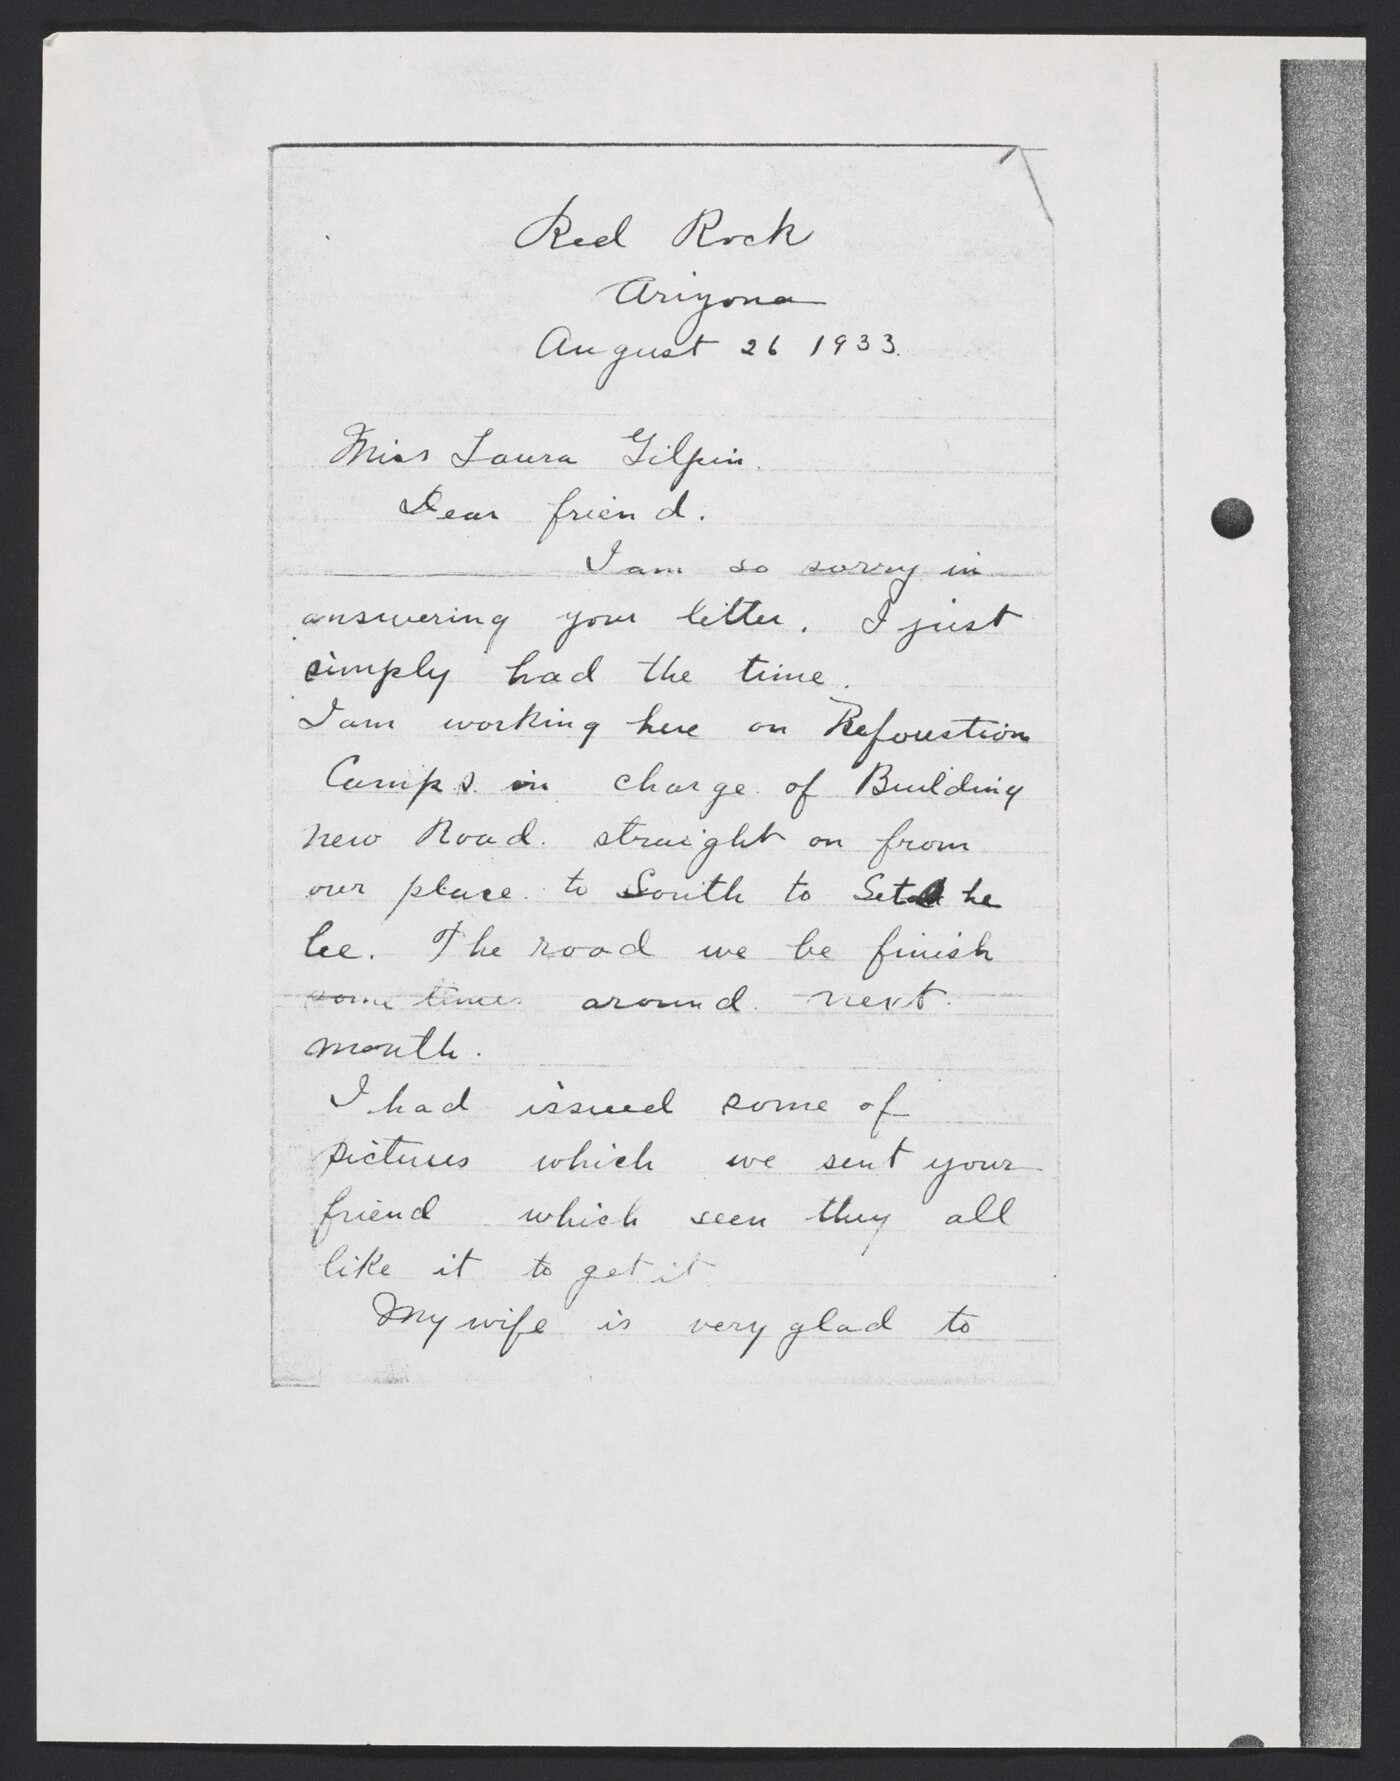 Red Rock
Arizona
August 26 1933.
Miss Laura Gilpin.
Dear friend.
I am so sorry in
answering your letter. I just
simply had the time.
I am working here on Reforestion
Camps. in charge of Building
new Road. straight on from
our place to South to Set he
lee. The road we be finish
some times around next
month.
I had issued some of
pictures which we sent your
friend which seen they all
like it to get it
My wife is very glad to